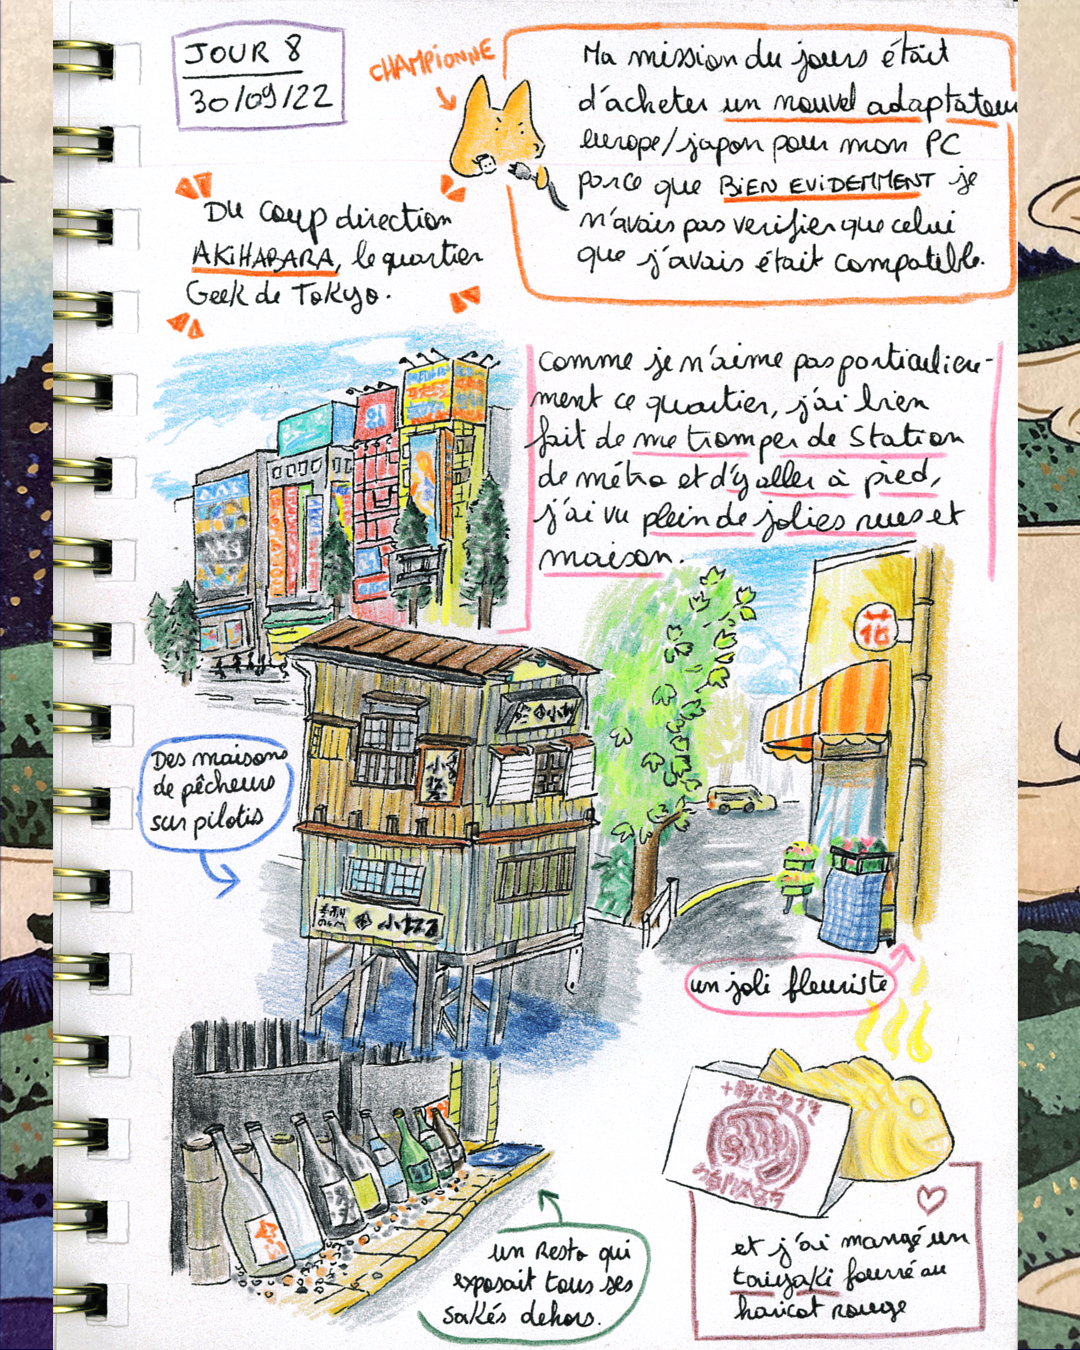 JOUR 8
30/09/22
CHAMPIONNE
Ma mission du jours était
d'acheter un nouvel adaptateur
europe/japon pour mon PC
parce que BIEN EVIDEMMENT je
n'avais pas verifier que celui
que j'avais était compatible.
Du coup direction
AKIHABARA, le quartier
Geek de Tokyo.
Comme je n'aime pas particuliere-
ment ce quartier, j'ai bien
fait de me tromper de Station
de métro et d'y aller à pied,
j'ai vu plein de jolies rues et
maison.
花
Des maisons
de pêcheurs
sur pilotis
un joli fleuriste
un Resto qui
exposait tous ses
sakés dehors.
et j'ai mangé un
taiyaki fourré au
haricot rouge